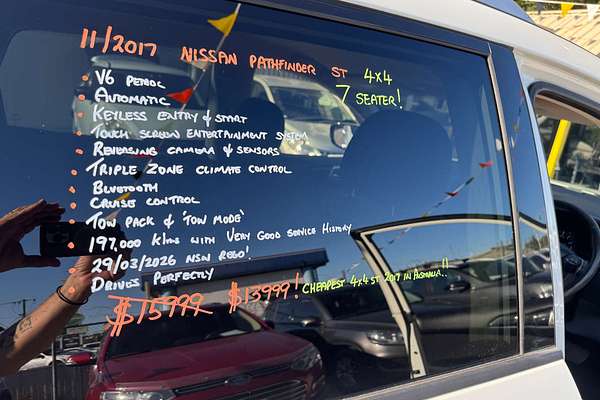 11/2017 NISSAN PATHFINDER ST 4x4
7 SEATER!
V6 PETROL
AUTOMATIC
KEYLESS ENTRY & START
TOUCH SCREEN ENTERTAINMENT SYSTEM
REVERSING CAMERA & SENSORS
TRIPLE ZONE CLIMATE CONTROL
BLUETOOTH
CRUISE CONTROL
TOW PACK & 'TOW MODE'
197,000 kms WITH VERY GOOD SERVICE HISTORY
29/03/2026 NSW REGO!
DRIVES PERFECTLY
$15999 $13999! CHEAPEST 4x4 ST 2017 IN AUSTRALIA!!